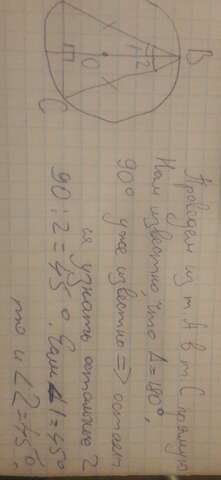 B
1
2
O
C
Проведем из т. A в т. C прямую
Нам известно, что Δ=180°,
90° уже известно => остает
ся узнать остальные 2
90:2=45°. Если ∠1=45°
то и ∠2=45°.